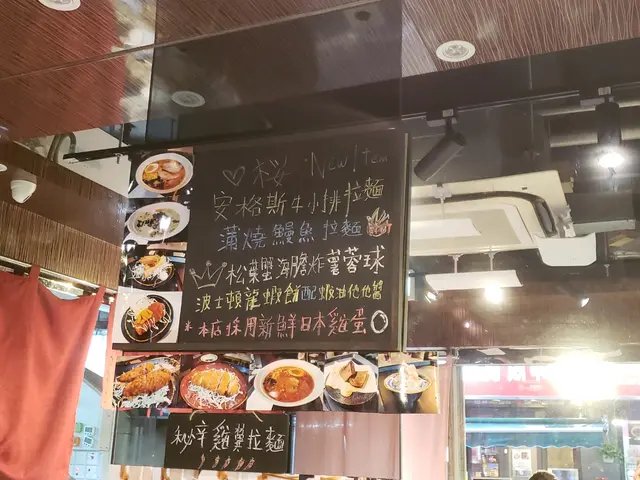 ♡ 桜 New Item
安格斯牛小排拉麵
蒲燒鰻魚拉麵
松葉蟹海膽炸薯蓉球
波士頓龍蝦餅配蝦油他他醬
*本店採用新鮮日本雞蛋
秘辛雞翼拉麵